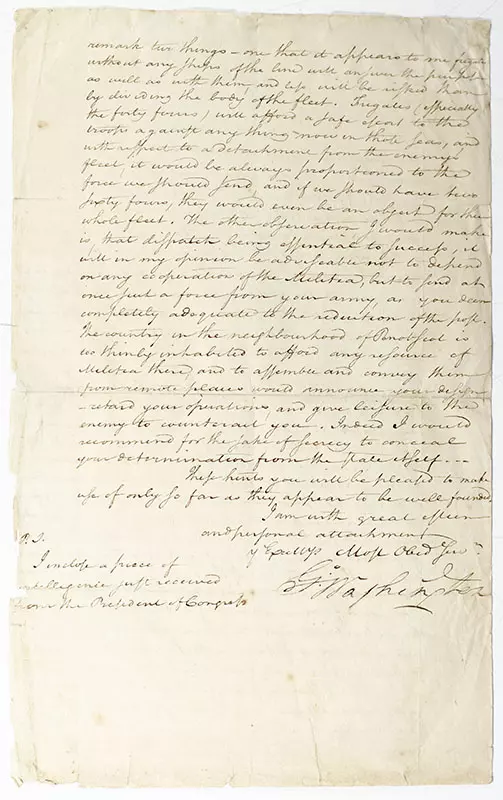 remark two things – one that it appears to me frigates
without any ships of the line will answer the purpose
as well as with them, and less will be risked than
by dividing the body of the fleet. Frigates (especially
the forty fours) will afford a safe escort to the
troops against any thing now in those seas, and
with respect to a detachment from the enemy's
fleet, it would be always proportioned to the
force we should send, and if we should have two
sixty fours, they would even be an object for their
whole fleet. The other observation I would make
is, that dispatch being essential to success, it
will in my opinion be adviseable not to depend
on any cooperation of the Militia, but to send at
once such a force from your army, as you deem
completely adequate to the reduction of the post.
The country in the neighbourhood of Penobscot is
too thinly inhabited to afford any resource of
Militia there, and to assemble and convey them
from remote places would announce your design
– retard your operations, and give leisure to the
enemy to counterail you. Indeed I would
recommend for the sake of secrecy to conceal
your determination from the state itself. –
These hints you will be pleased to make
use of only so far as they appear to be well founded
I am with great esteem
and personal attachment
Y Excellys Most Obed Serv
Go Washington
P.S.
I inclose a piece of
intelligence just received
from the President of Congress